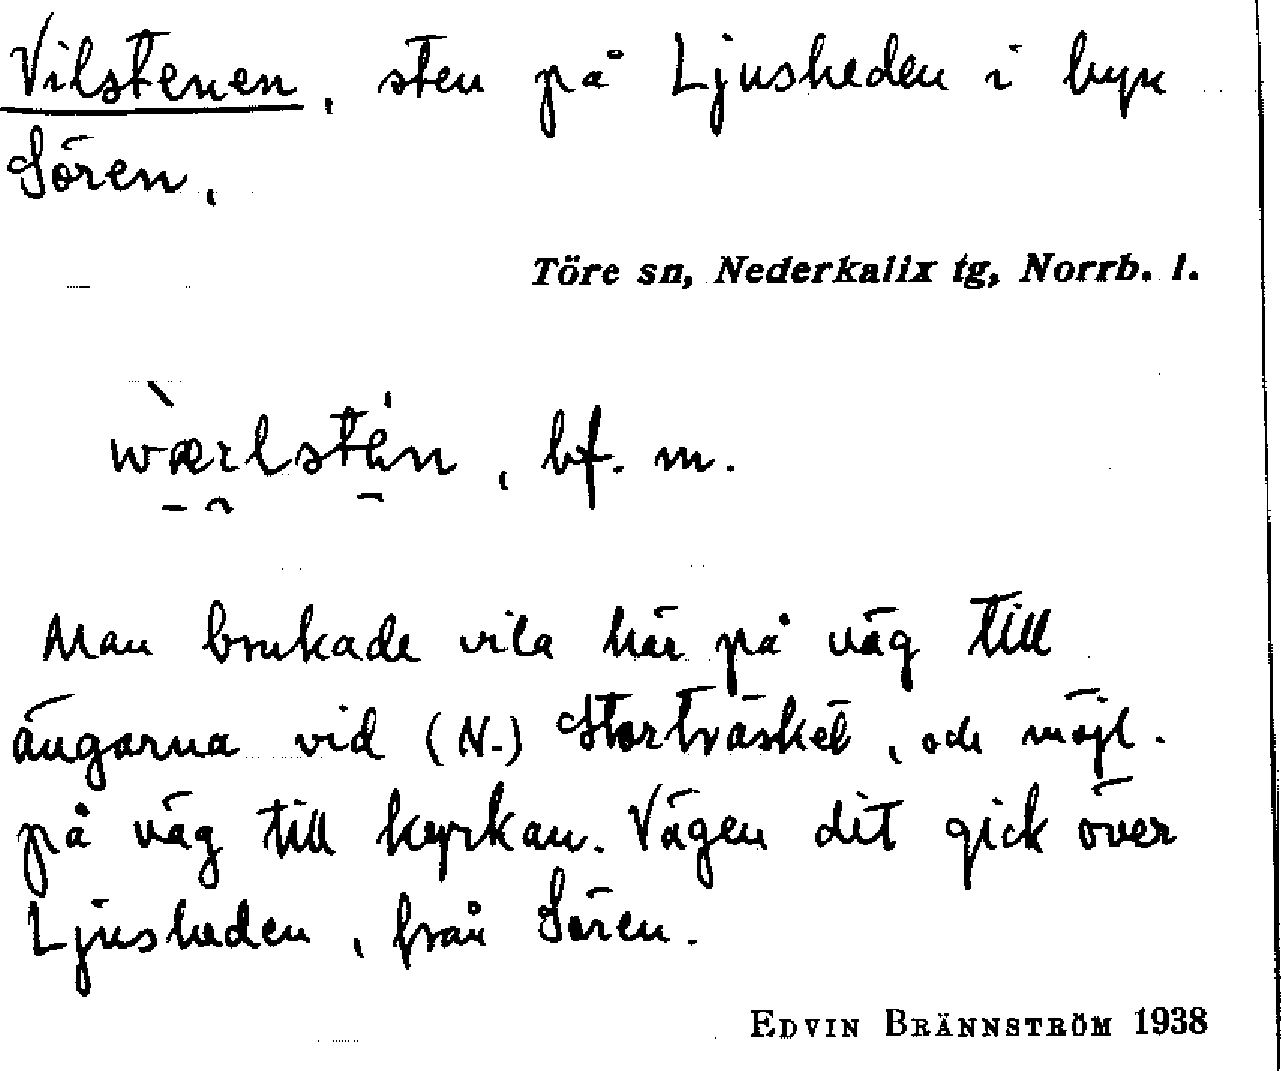 Vilstenen, sten på Ljusheden i byn
Sören.
Töre sn, Nederkalix tg, Norrb. l.
wàrlstén, bf. m.
Man brukade vila här på väg till
ängarna vid (N.) Storträsket, och möjl.
på väg till kyrkan. Vägen dit gick över
Ljusheden, från Sören.
EDVIN BRÄNNSTRÖM 1938